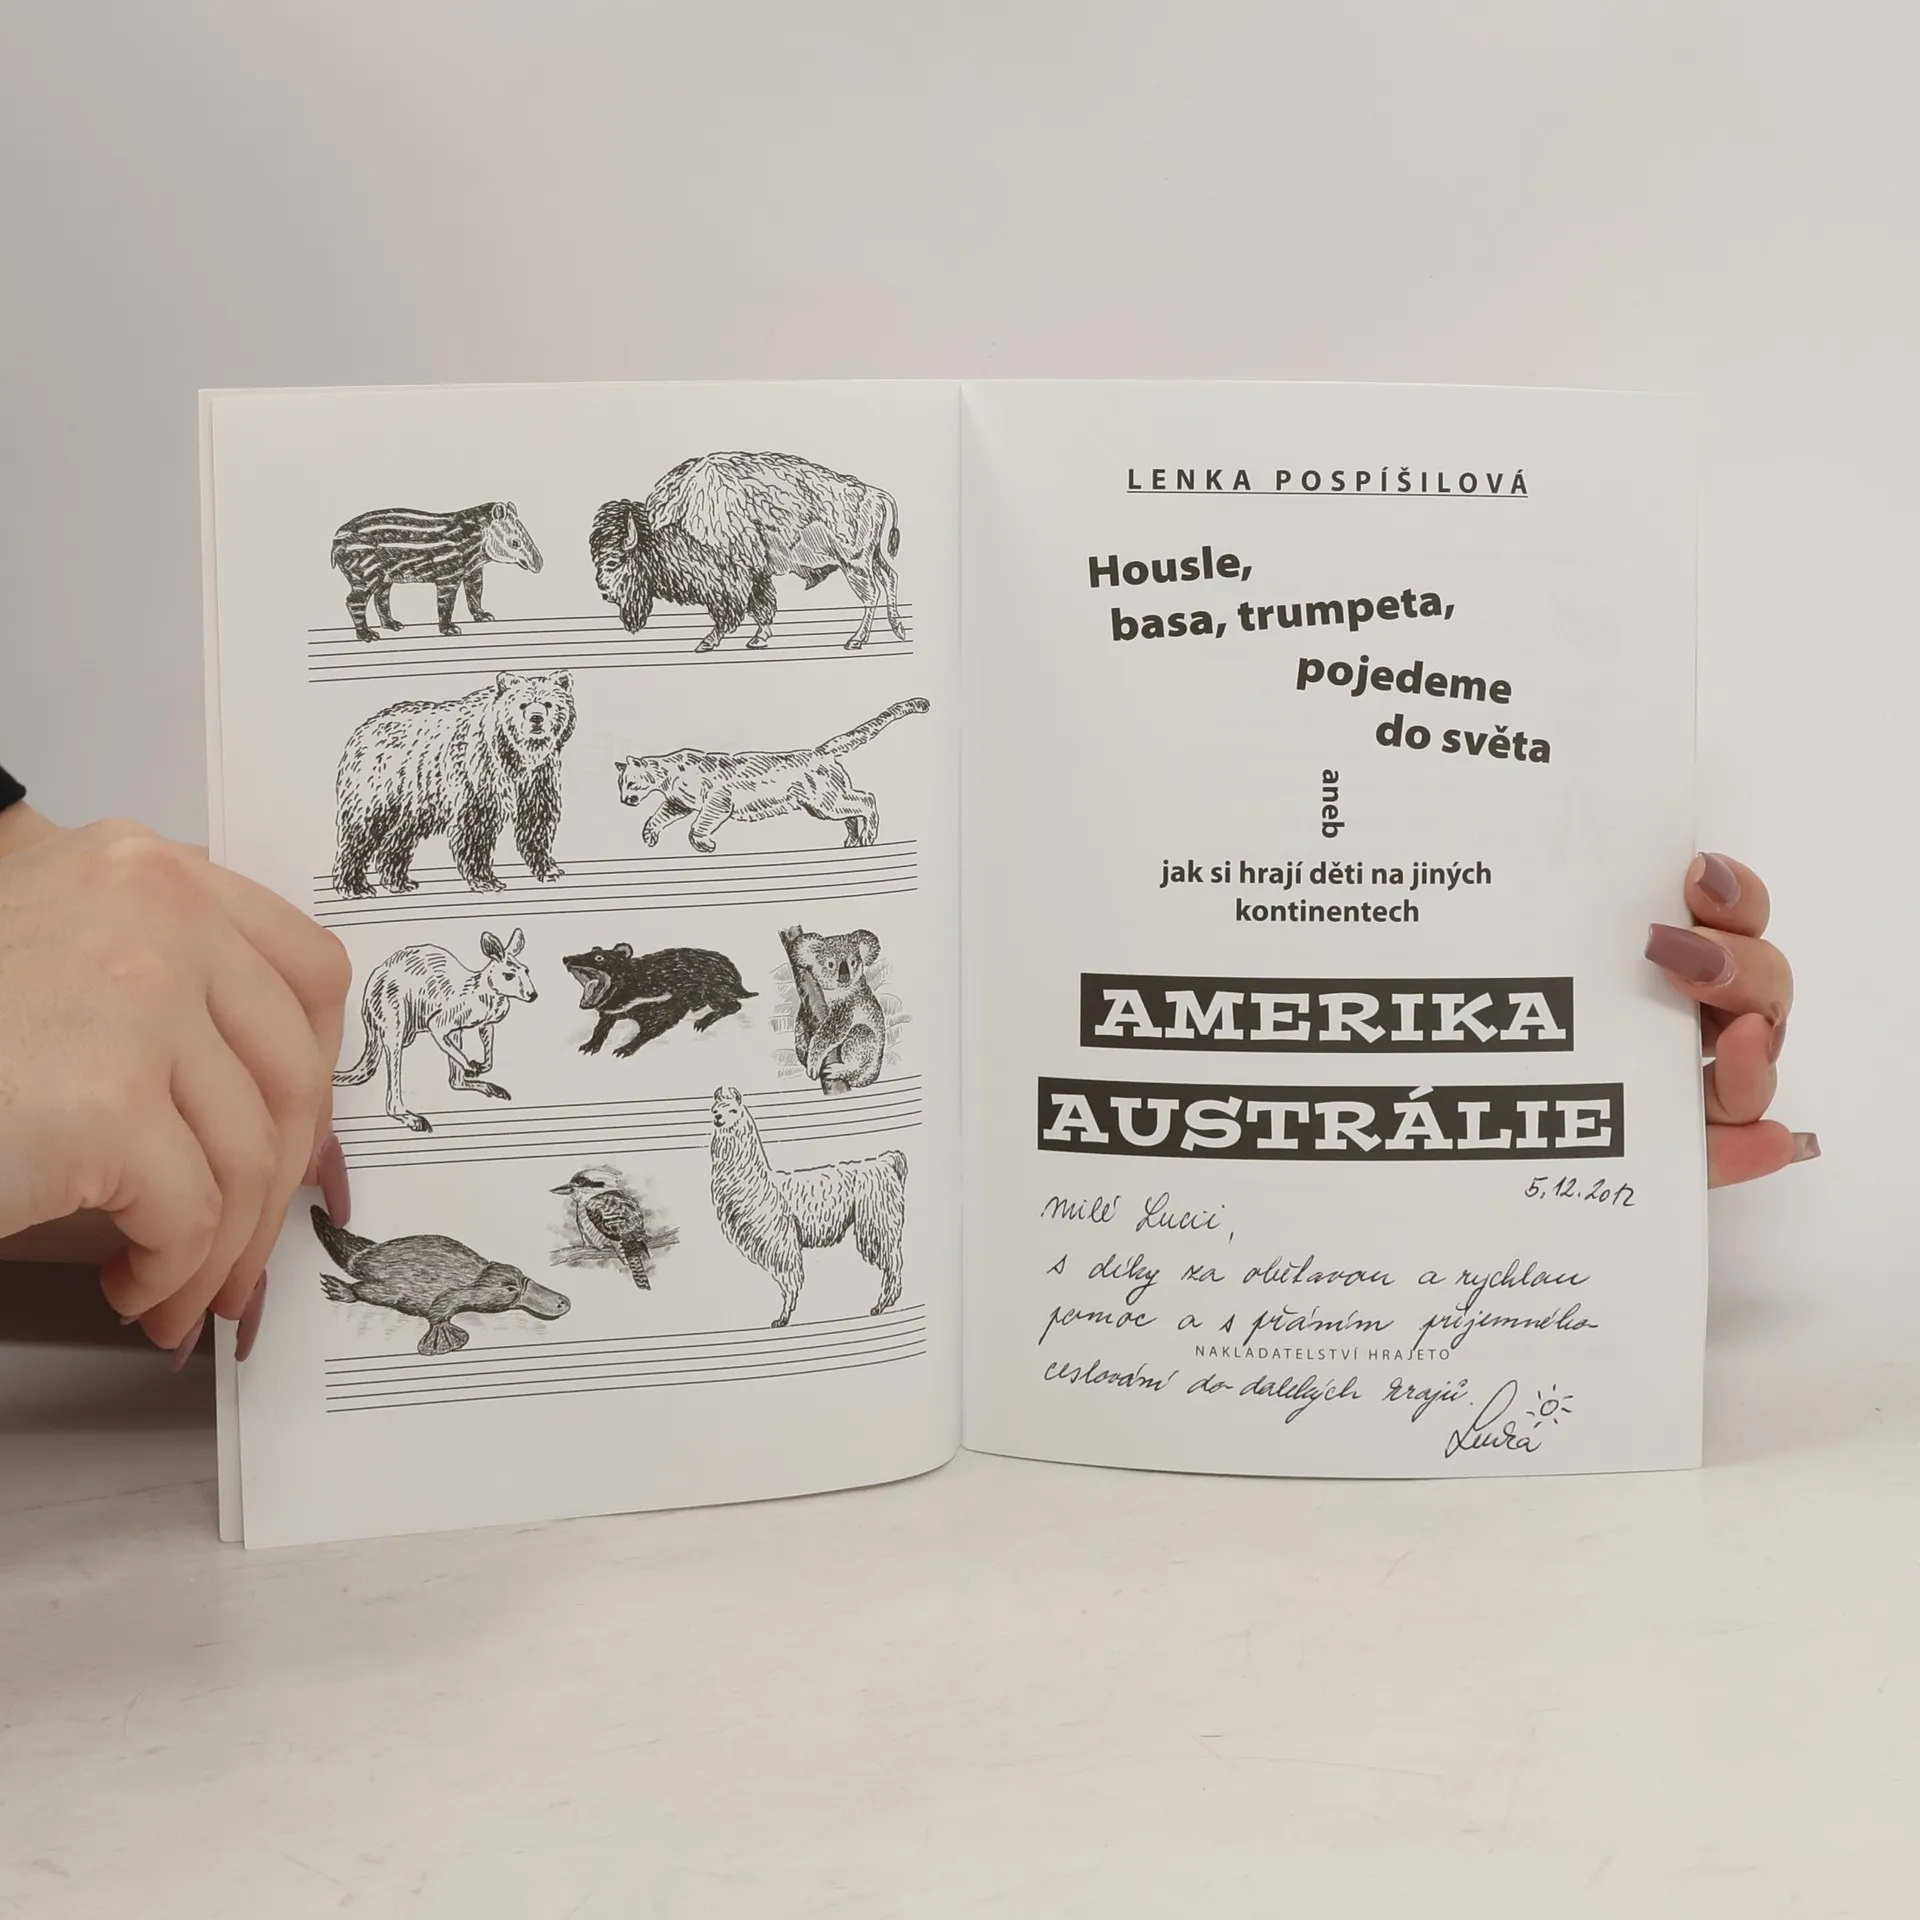 LENKA POSPÍŠILOVÁ
Housle,
basa, trumpeta,
pojedeme
do světa
aneb
jak si hrají děti na jiných
kontinentech
AMERIKA
AUSTRÁLIE
5.12.2012
Milé Lucii,
s díky za obětavou a rychlou
pomoc a s přáním příjemného
NAKLADATELSTVÍ HRAJETO
cestování do dalekých krajů.
Lenka